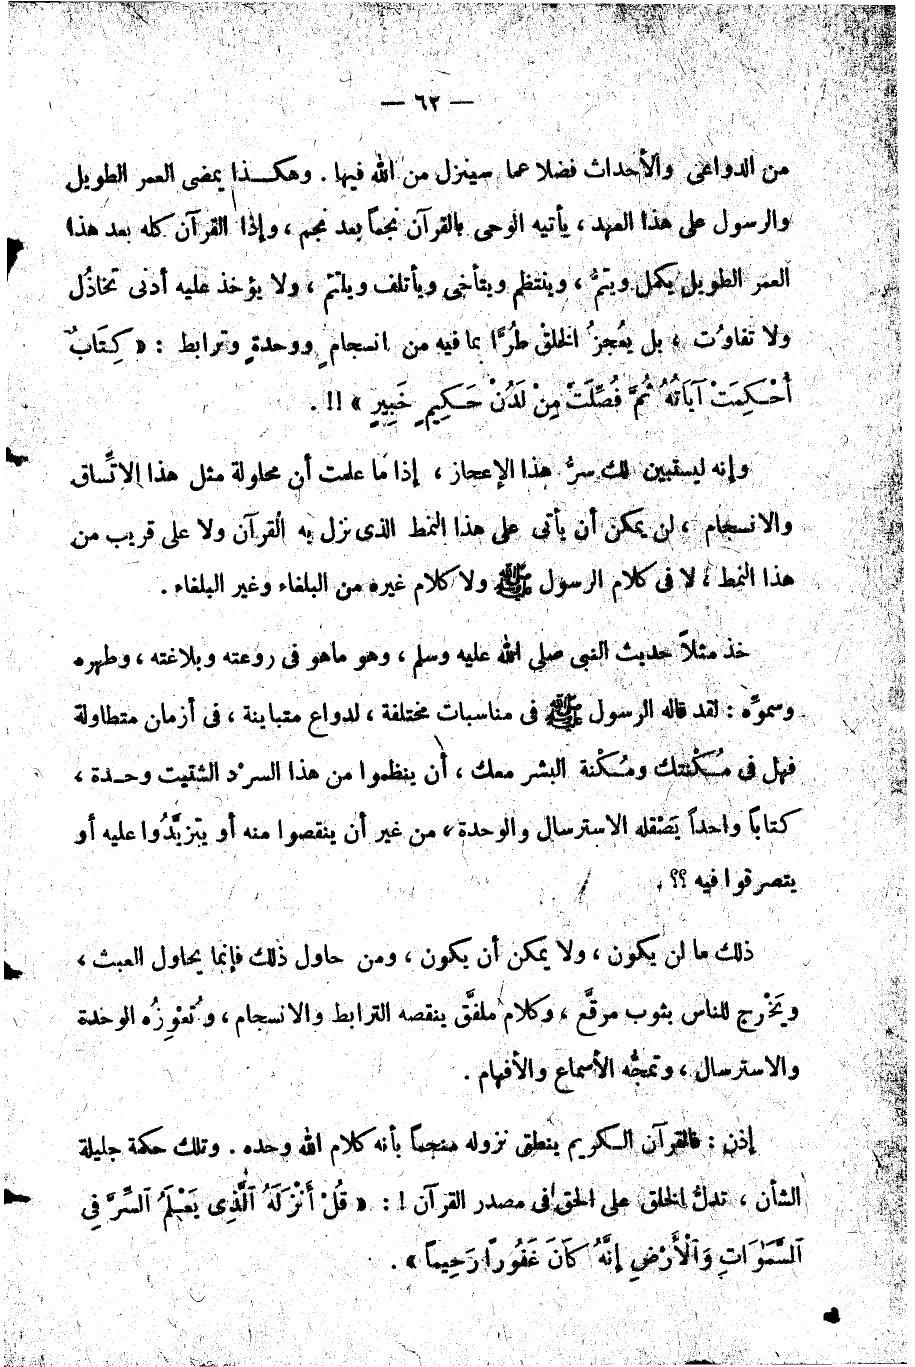 — ٦٣ —
من الدواعى والأحداث فضلا عما سينزل من الله فيها . وهكـــذا يمضى العمر الطويل
والرسول على هذا العهد ، يأتيه الوحى بالقرآن نجماً بعد نجم ، وإذا القرآن كله بعد هذا
العمر الطويل يكمل ويتمُّ ، وينتظم ويتآخى ويأتلف ويلتئم ، ولا يؤخذ عليه أدنى تخاذُل
ولا تفاوُت ، بل يعُجز الخلقْ طُرًّا بما فيه من انسجام ٍ ووحدةٍ وترابط : « كِتَابٌ
أُحْكِمَتْ آيَاتُهُ ثُمَّ فُصِّلَتْ مِنْ لَدُنْ حَـكِيمٍ خَبِيرٍ » !! .
وإنه ليستبين لك سرُّ هذا الإعجاز ، إذا ما علمت أن محاولة مثل هذا الاتِّساق
والانسجام ، لن يمكن أن يأتى على هذا النمط الذى نزل به القرآن ولا على قريب من
هذا النمط ، لا فى كلام الرسول ﷺ ولا كلام غيره من البلغاء وغير البلغاء .
خذ مثلاً حديث النبى صلى الله عليه وسلم ، وهو ماهو فى روعته وبلاغته ، وطهره
وسموِّه : لقد قاله الرسول ﷺ فى مناسبات مختلفة ، لدواع متباينة ، فى أزمان متطاولة
فهل فى مُـكْنتك ومُـكْنة البشر معك ، أن ينظموا من هذا السرْد الشتيت وحـدة ،
كتاباً واحداً يَصْقله الاسترسال والوحدة ، من غير أن ينقصوا منه أو يتزيَّدُوا عليه أو
يتصرفوا فيه ؟؟ .
ذلك ما لن يكون ، ولا يمكن أن يكون ، ومن حاول ذلك فإنما يحاول العبث ،
ويَخْرج للناس بثوب مرقَّع ، وكلام ملفَّق ينقصه الترابط والانسجام ، وتُعْوِزُه الوحدة
والاسترسال ، وتمجُّه الأسماع والأفهام .
إذن : فالقرآن الـكريم ينطق نزوله منجماً بأنه كلام الله وحده . وتلك حكمة جليلة
الشأن ، تدلُّ الخلق على الحق فى مصدر القرآن ! : « قُلْ أَنْزَلَهُ ٱلَّذِى يَعْـلَمُ ٱلسِّرَّ فِى
ٱلسَّمٰوَاتِ وَٱلْأَرْضِ إِنَّهُ كَانَ غَفُورًا رَحِيماً » .